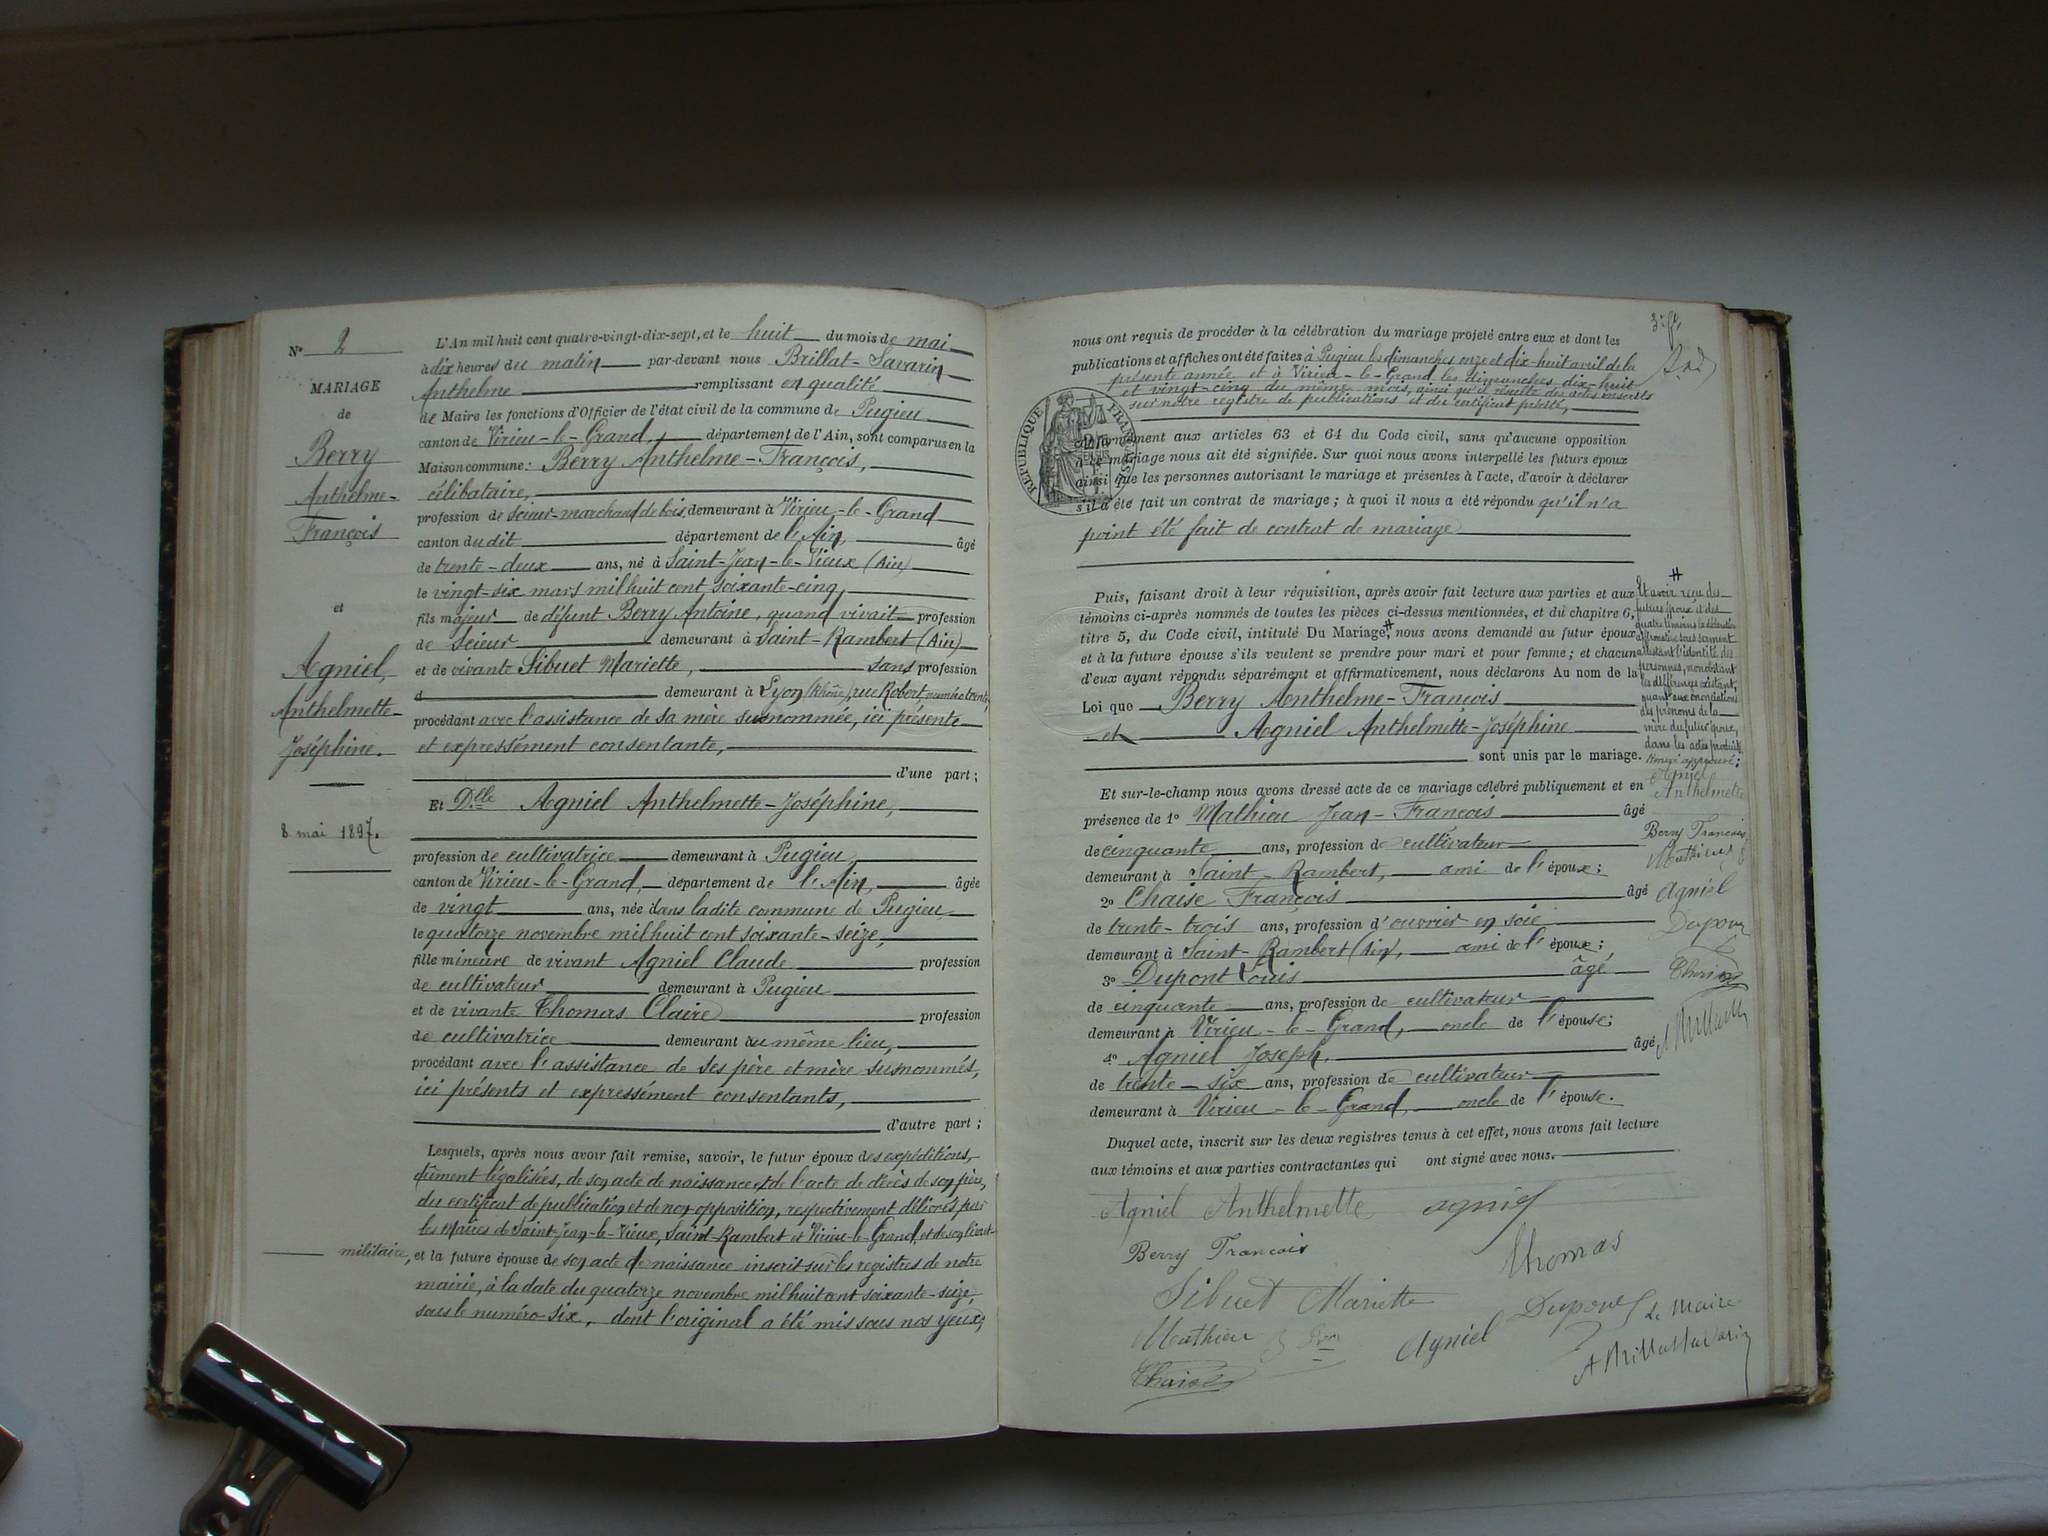 N° 2
MARIAGE
de
Berry
Anthelme-
François
et
Agniel,
Anthelmette-
Joséphine.
8 mai 1897.
L'An mil huit cent quatre-vingt-dix-sept, et le huit du mois de mai
à dix heures du matin par-devant nous Brillat-Savarin
Anthelme remplissant en qualité
de Maire les fonctions d'Officier de l'état civil de la commune de Pugieu
canton de Virieu-le-Grand, département de l'Ain, sont comparus en la
Maison commune: Berry Anthelme-François,
célibataire,
profession de scieur-marchand de bois, demeurant à Virieu-le-Grand
canton dudit département de l'Ain, âgé
de trente-deux ans, né à Saint-Jean-le-Vieux (Ain)
le vingt-six mars mil huit cent soixante-cinq,
fils majeur de défunt Berry Antoine, quand vivait profession
de scieur demeurant à Saint-Rambert (Ain)
et de vivante Sibuet Mariette, sans profession
d demeurant à Lyon (Rhône), rue Robert, numéro trente,
procédant avec l'assistance de sa mère susnommée, ici présente
et expressément consentante,
d'une part;
Et Dlle Agniel Anthelmette-Joséphine,
profession de cultivatrice demeurant à Pugieu,
canton de Virieu-le-Grand, département de l'Ain, âgée
de vingt ans, née dans ladite commune de Pugieu
le quatorze novembre mil huit cent soixante-seize,
fille mineure de vivant Agniel Claude profession
de cultivateur demeurant à Pugieu
et de vivante Thomas Claire profession
de cultivatrice demeurant au même lieu,
procédant avec l'assistance de ses père et mère susnommés,
ici présents et expressément consentants,
d'autre part;
Lesquels, après nous avoir fait remise, savoir, le futur époux des expéditions,
dûment légalisées, de son acte de naissance et de l'acte de décès de son père,
du certificat de publication et de non opposition, respectivement délivrés par
les Maires de Saint-Jean-le-Vieux, Saint-Rambert et Virieu-le-Grand, et de son livret
militaire, et la future épouse de son acte de naissance inscrit sur les registres de notre
mairie, à la date du quatorze novembre mil huit cent soixante-seize,
sous le numéro six, dont l'original a été mis sous nos yeux,
nous ont requis de procéder à la célébration du mariage projeté entre eux et dont les
publications et affiches ont été faites à Pugieu les dimanches onze et dix-huit avril de la
présente année et à Virieu-le-Grand les dimanches dix-huit
et vingt-cinq du même mois, ainsi qu'il résulte des actes inscrits
sur notre registre de publications et du certificat précité,
RÉPUBLIQUE FRANÇAISE
conformément aux articles 63 et 64 du Code civil, sans qu'aucune opposition
à ce mariage nous ait été signifiée. Sur quoi nous avons interpellé les futurs époux
ainsi que les personnes autorisant le mariage et présentes à l'acte, d'avoir à déclarer
s'il a été fait un contrat de mariage; à quoi il nous a été répondu qu'il n'a
point été fait de contrat de mariage
Puis, faisant droit à leur réquisition, après avoir fait lecture aux parties et aux
témoins ci-après nommés de toutes les pièces ci-dessus mentionnées, et du chapitre 6,
titre 5, du Code civil, intitulé Du Mariage,# nous avons demandé au futur époux
et à la future épouse s'ils veulent se prendre pour mari et pour femme; et chacun
d'eux ayant répondu séparément et affirmativement, nous déclarons Au nom de la
Loi que Berry Anthelme-François
et Agniel Anthelmette-Joséphine
sont unis par le mariage.
Et sur-le-champ nous avons dressé acte de ce mariage célébré publiquement et en
présence de 1° Mathieu Jean-François âgé
de cinquante ans, profession de cultivateur
demeurant à Saint-Rambert, ami de l'époux;
2° Chaise François âgé
de trente-trois ans, profession d'ouvrier en soie
demeurant à Saint-Rambert (Ain), ami de l'époux;
3° Dupont Louis âgé
de cinquante ans, profession de cultivateur
demeurant à Virieu-le-Grand, oncle de l'épouse;
4° Agniel Joseph, âgé
de trente-six ans, profession de cultivateur
demeurant à Virieu-le-Grand, oncle de l'épouse.
Duquel acte, inscrit sur les deux registres tenus à cet effet, nous avons fait lecture
aux témoins et aux parties contractantes qui ont signé avec nous.
Agniel Anthelmette agniel
Berry Francois Thomas
Sibuet Mariette
Mathieu Agniel Dupont Le Maire
Chaise A Brillat Savarin
#
Et avoir reçu des
futurs époux et des
quatre témoins la déclaration
affirmative sous serment
attestant l'identité des
personnes, nonobstant
les différences existant,
quant aux énonciations
des prénoms de la
mère du futur époux,
dans les actes produits.
Renvoi approuvé:
Agniel
Anthelmette
Berry Francois
Mathieu
Agniel
Dupont
Chaise